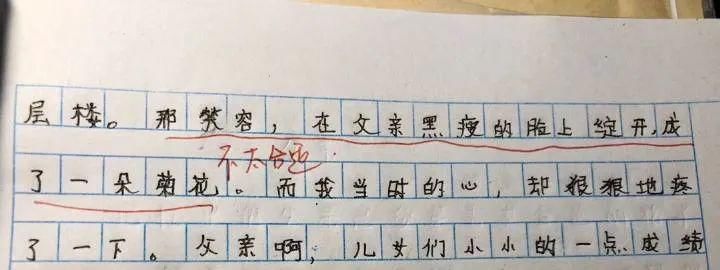 层楼。那笑容，在父亲黑瘦的脸上绽开，成
不太合适
了一朵菊花。而我当时的心，却狠狠地疼
了一下。父亲啊，儿女们小小的一点成绩